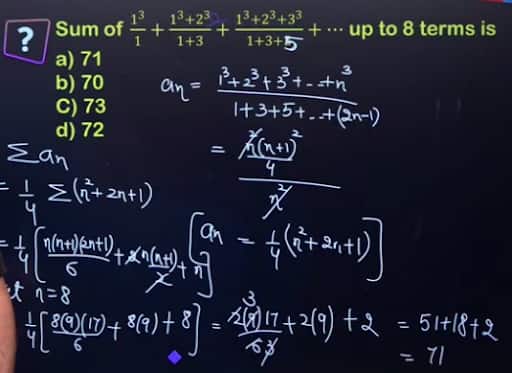 ? Sum of 1³/1 + (1³+2³)/(1+3) + (1³+2³+3³)/(1+3+5) + ··· up to 8 terms is
a) 71
b) 70
C) 73
d) 72
an = (1³+2³+3³+..+n³)/(1+3+5+..+(2n-1))
= (n²(n+1)²/4)/n²
[an = 1/4 (n²+2n+1)]
Σan
= 1/4 Σ(n²+2n+1)
= 1/4 [n(n+1)(2n+1)/6 + 2n(n+1)/2 + n]
t n=8
1/4 [8(9)(17)/6 + 8(9) + 8] = 2(9)17/6 + 2(9) + 2 = 51+18+2
= 71